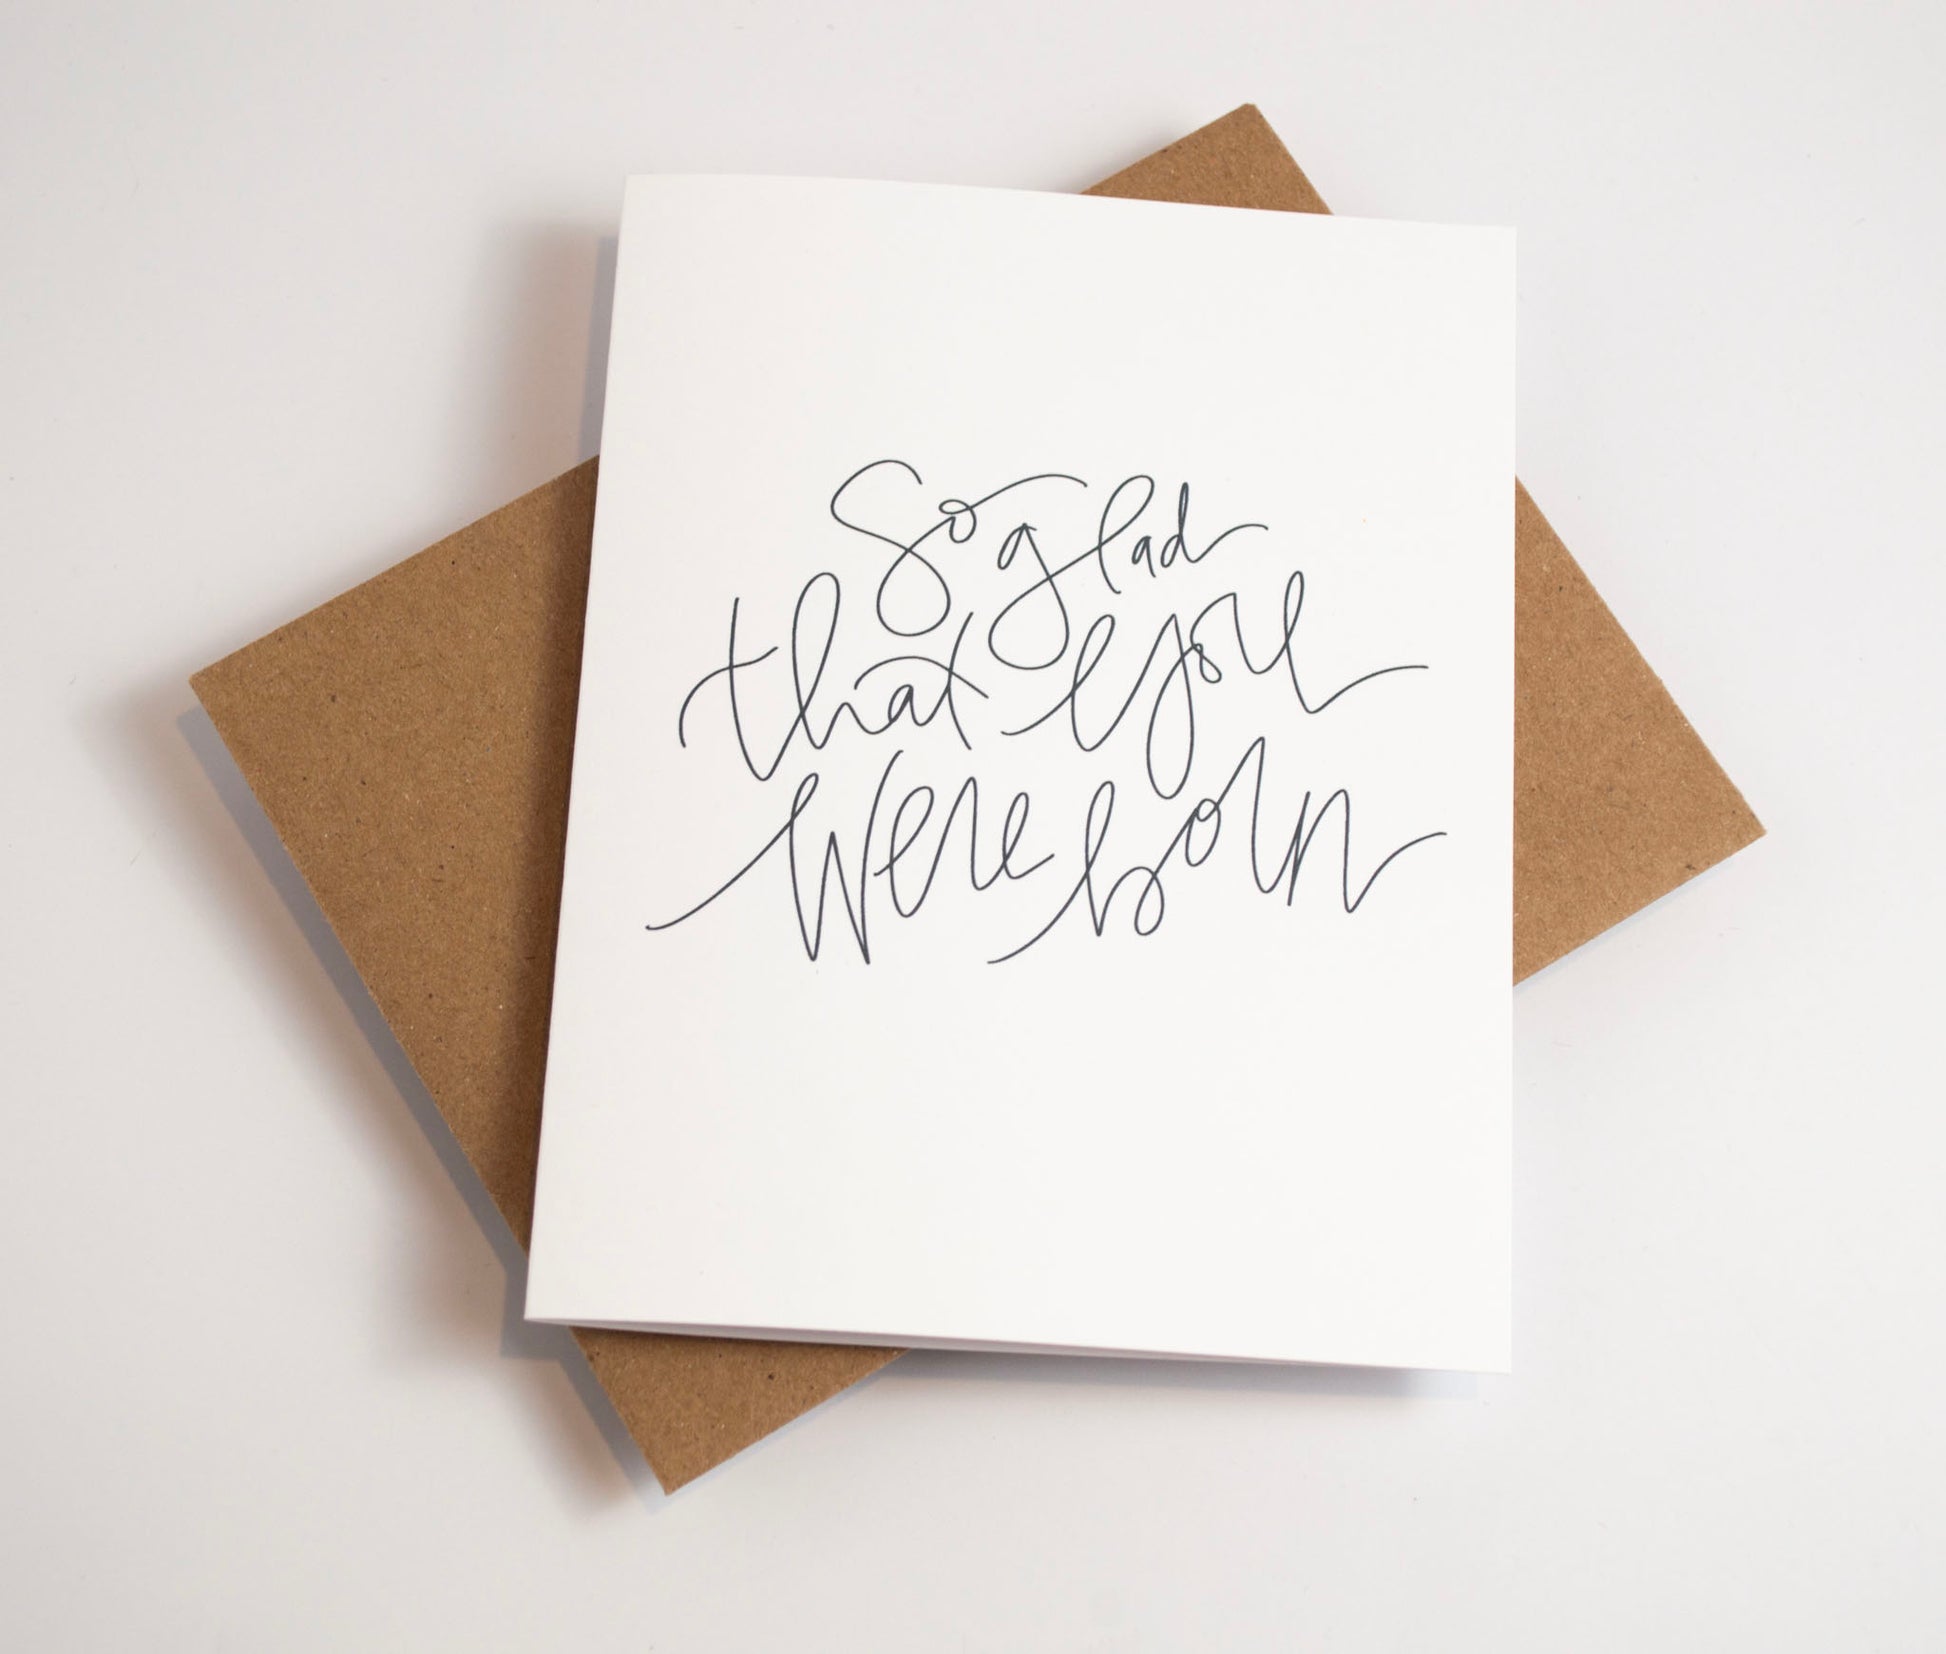 So glad
that you
were born